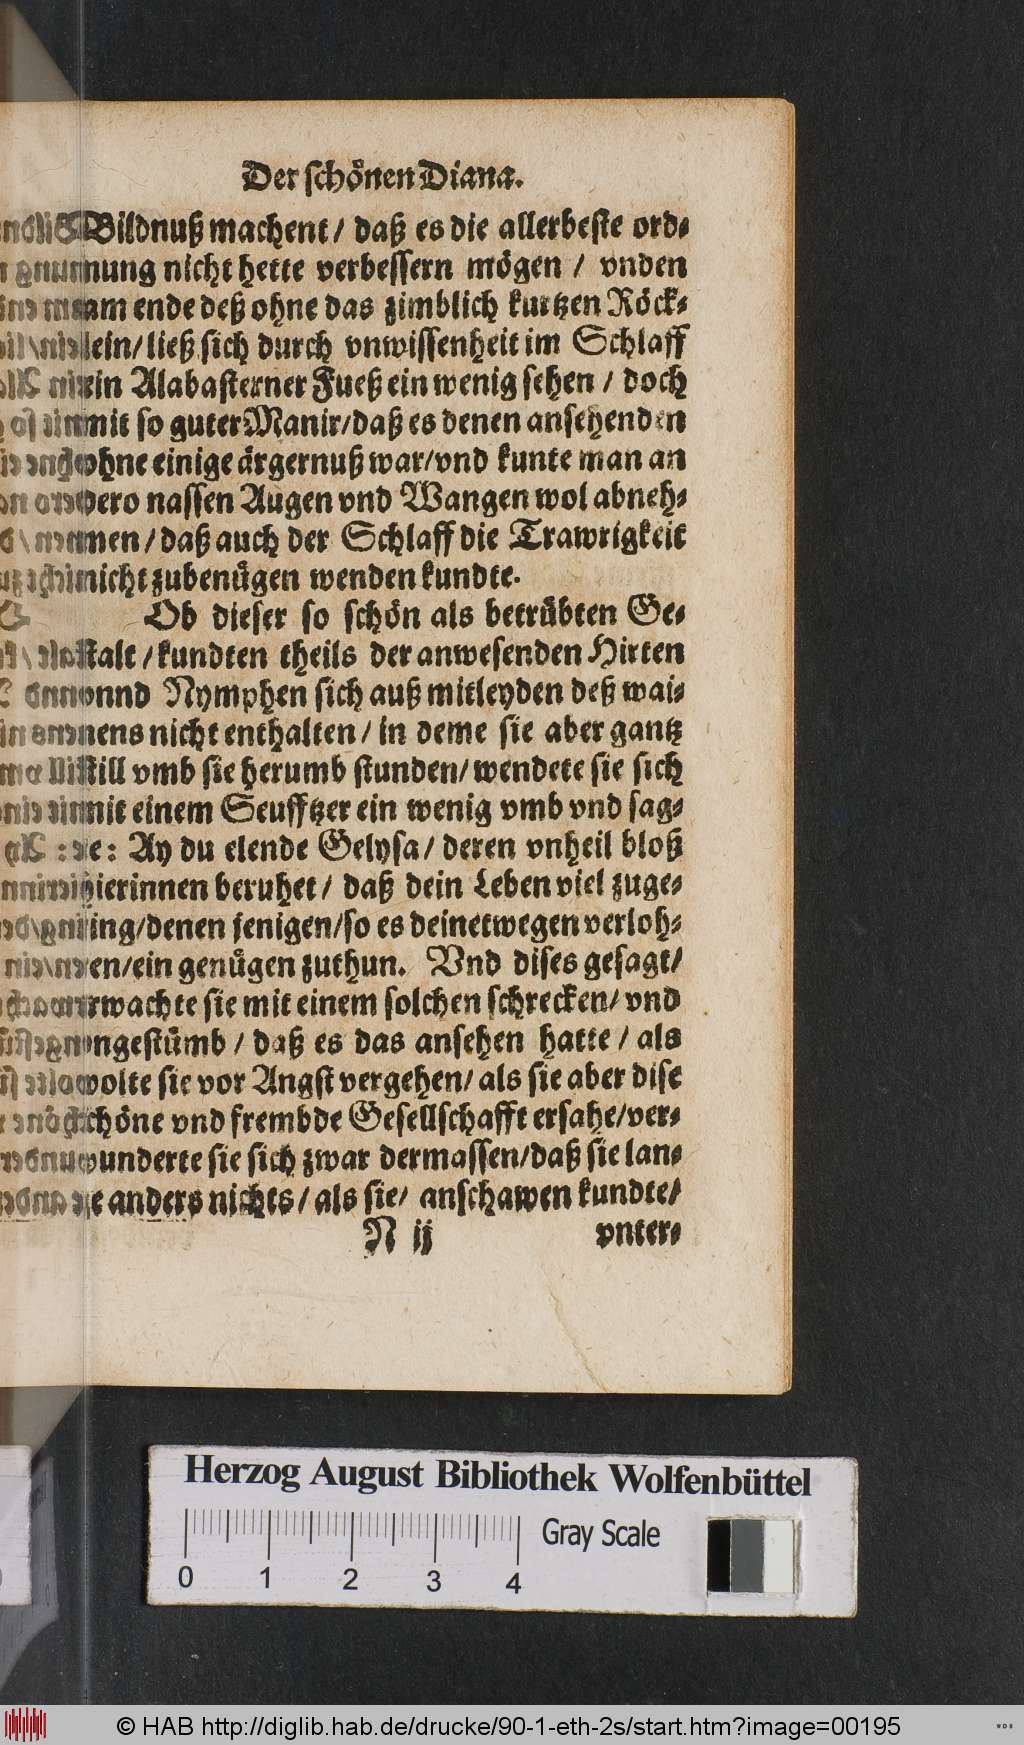 Der schoͤnen Diana.
Bildnuß machent / daß es die allerbeste ord⸗
nung nicht hette verbessern moͤgen / vnden
am ende deß ohne das zimblich kurtzen Roͤck⸗
lein / ließ sich durch vnwissenheit im Schlaff
ein Alabasterner Fueß ein wenig sehen / doch
mit so guter Manir / daß es denen ansehenden
ohne einige aͤrgernuß war / vnd kunte man an
dero nassen Augen vnd Wangen wol abneh⸗
men / daß auch der Schlaff die Trawrigkeit
nicht zubenuͤgen wenden kundte.
Ob dieser so schoͤn als betruͤbten Ge⸗
stalt / kundten theils der anwesenden Hirten
vnnd Nymphen sich auß mitleyden deß wai⸗
nens nicht enthalten / in deme sie aber gantz
still vmb sie herumb stunden / wendete sie sich
mit einem Seufftzer ein wenig vmb vnd sag⸗
te: Ay du elende Gelysa / deren vnheil bloß
hierinnen beruhet / daß dein Leben viel zuge⸗
ring / denen jenigen / so es deinetwegen verloh⸗
ren / ein genuͤgen zuthun. Vnd dises gesagt /
erwachte sie mit einem solchen schrecken / vnd
vngestuͤmb / daß es das ansehen hatte / als
wolte sie vor Angst vergehen / als sie aber dise
schoͤne vnd frembde Gesellschafft ersahe / ver⸗
wunderte sie sich zwar dermassen / daß sie lan⸗
ge anders nichts / als sie / anschawen kundte /
N ij vnter⸗
Herzog August Bibliothek Wolfenbüttel
Gray Scale
0 1 2 3 4
© HAB http://diglib.hab.de/drucke/90-1-eth-2s/start.htm?image=00195